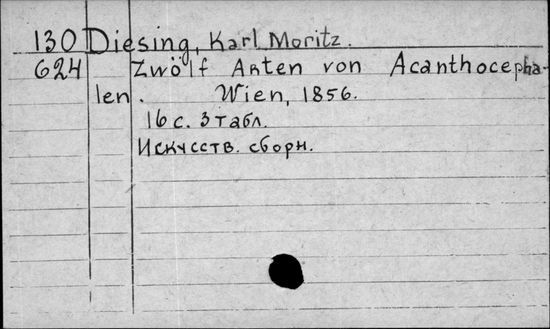 130 Diesing, Karl Moritz.
624 Zwölf Arten von Acanthocepha-
len. Wien, 1856.
16 с. 3 табл.
Искусств. сборн.